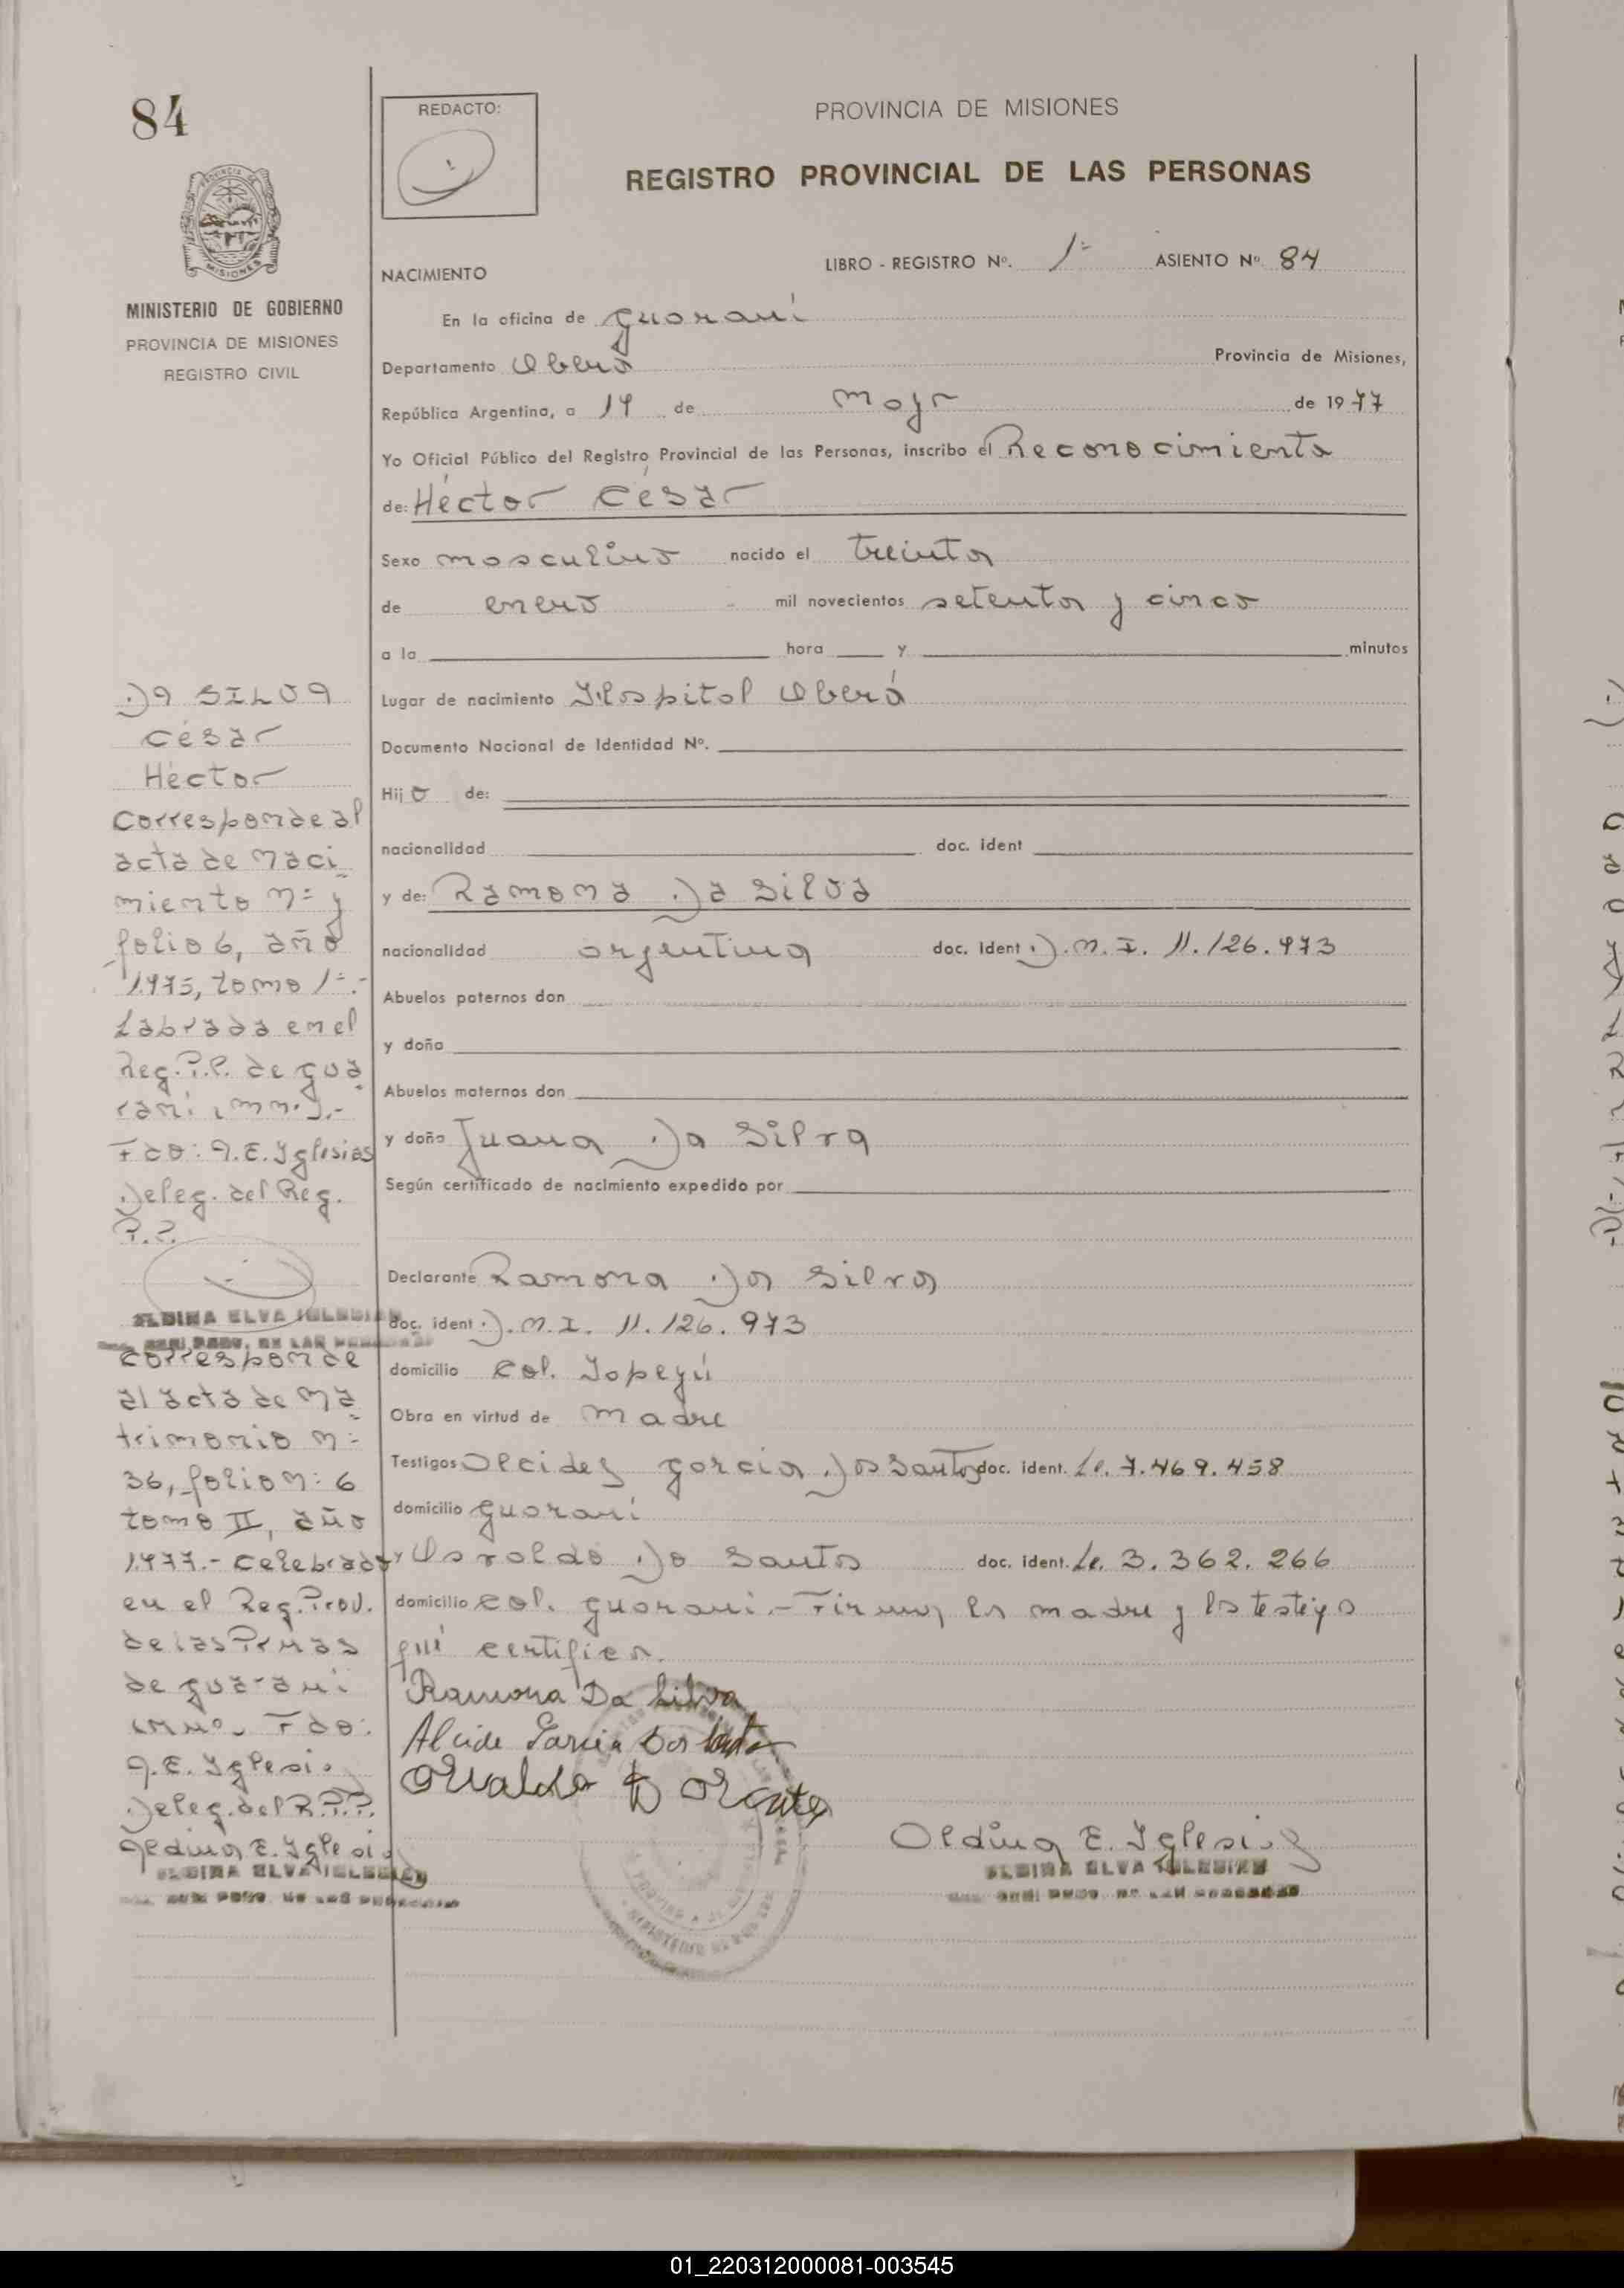 84
REDACTO:
PROVINCIA DE MISIONES
REGISTRO PROVINCIAL DE LAS PERSONAS
MISIONES
MINISTERIO DE GOBIERNO
PROVINCIA DE MISIONES
REGISTRO CIVIL
NACIMIENTO
LIBRO - REGISTRO Nº. 1º ASIENTO Nº 84
En la oficina de Guaraní
Departamento Oberá Provincia de Misiones,
República Argentina, a 14 de mayo de 1977
Yo Oficial Público del Registro Provincial de las Personas, inscribo el Reconocimiento
de: Héctor César
Sexo masculino nacido el treinta
de enero mil novecientos setenta y cinco
a la hora y minutos
Lugar de nacimiento Hospital Oberá
Documento Nacional de Identidad Nº.
Hijo de:
nacionalidad doc. ident
y de: Ramona Da Silva
nacionalidad argentina doc. ident D.N.I. 11.126.973
Abuelos paternos don
y doña
Abuelos maternos don
y doña Juana Da Silva
Según certificado de nacimiento expedido por
Declarante Ramona Da Silva
doc. ident D.N.I. 11.126.973
domicilio Col. Yapeyú
Obra en virtud de madre
Testigos Alcides Garcia Dos Santos doc. ident. Le. 7.469.458
domicilio Guaraní
y Osvaldo Do Santos doc. ident. Le. 3.362.266
domicilio Col. Guaraní.- Firman la madre y los testigos
que certifico.
Ramona Da Silva
Alcide Garcia Dos Santos
Osvaldo D
Aldina E. Iglesias
ALDINA ELVA IGLESIAS
DA SILVA
César
Héctor
Corresponde al
acta de naci
miento Nº y
folio 6, año
1975, tomo 1º.-
Labrada en el
Reg. P.P. de Gua
raní (Mns.).-
Fdo: A.E. Iglesias
Deleg. del Reg.
P.P.
ALDINA ELVA IGLESIAS
Corresponde
al acta de ma
trimonio Nº
36, folio Nº 6
tomo II, año
1977.- Celebrado
en el Reg. Prov.
de las Pernas
de Guaraní
Fdo:
A.E. Iglesia
Deleg. del R.P.P.
Aldina E. Iglesias
ALDINA ELVA IGLESIAS
01_220312000081-003545